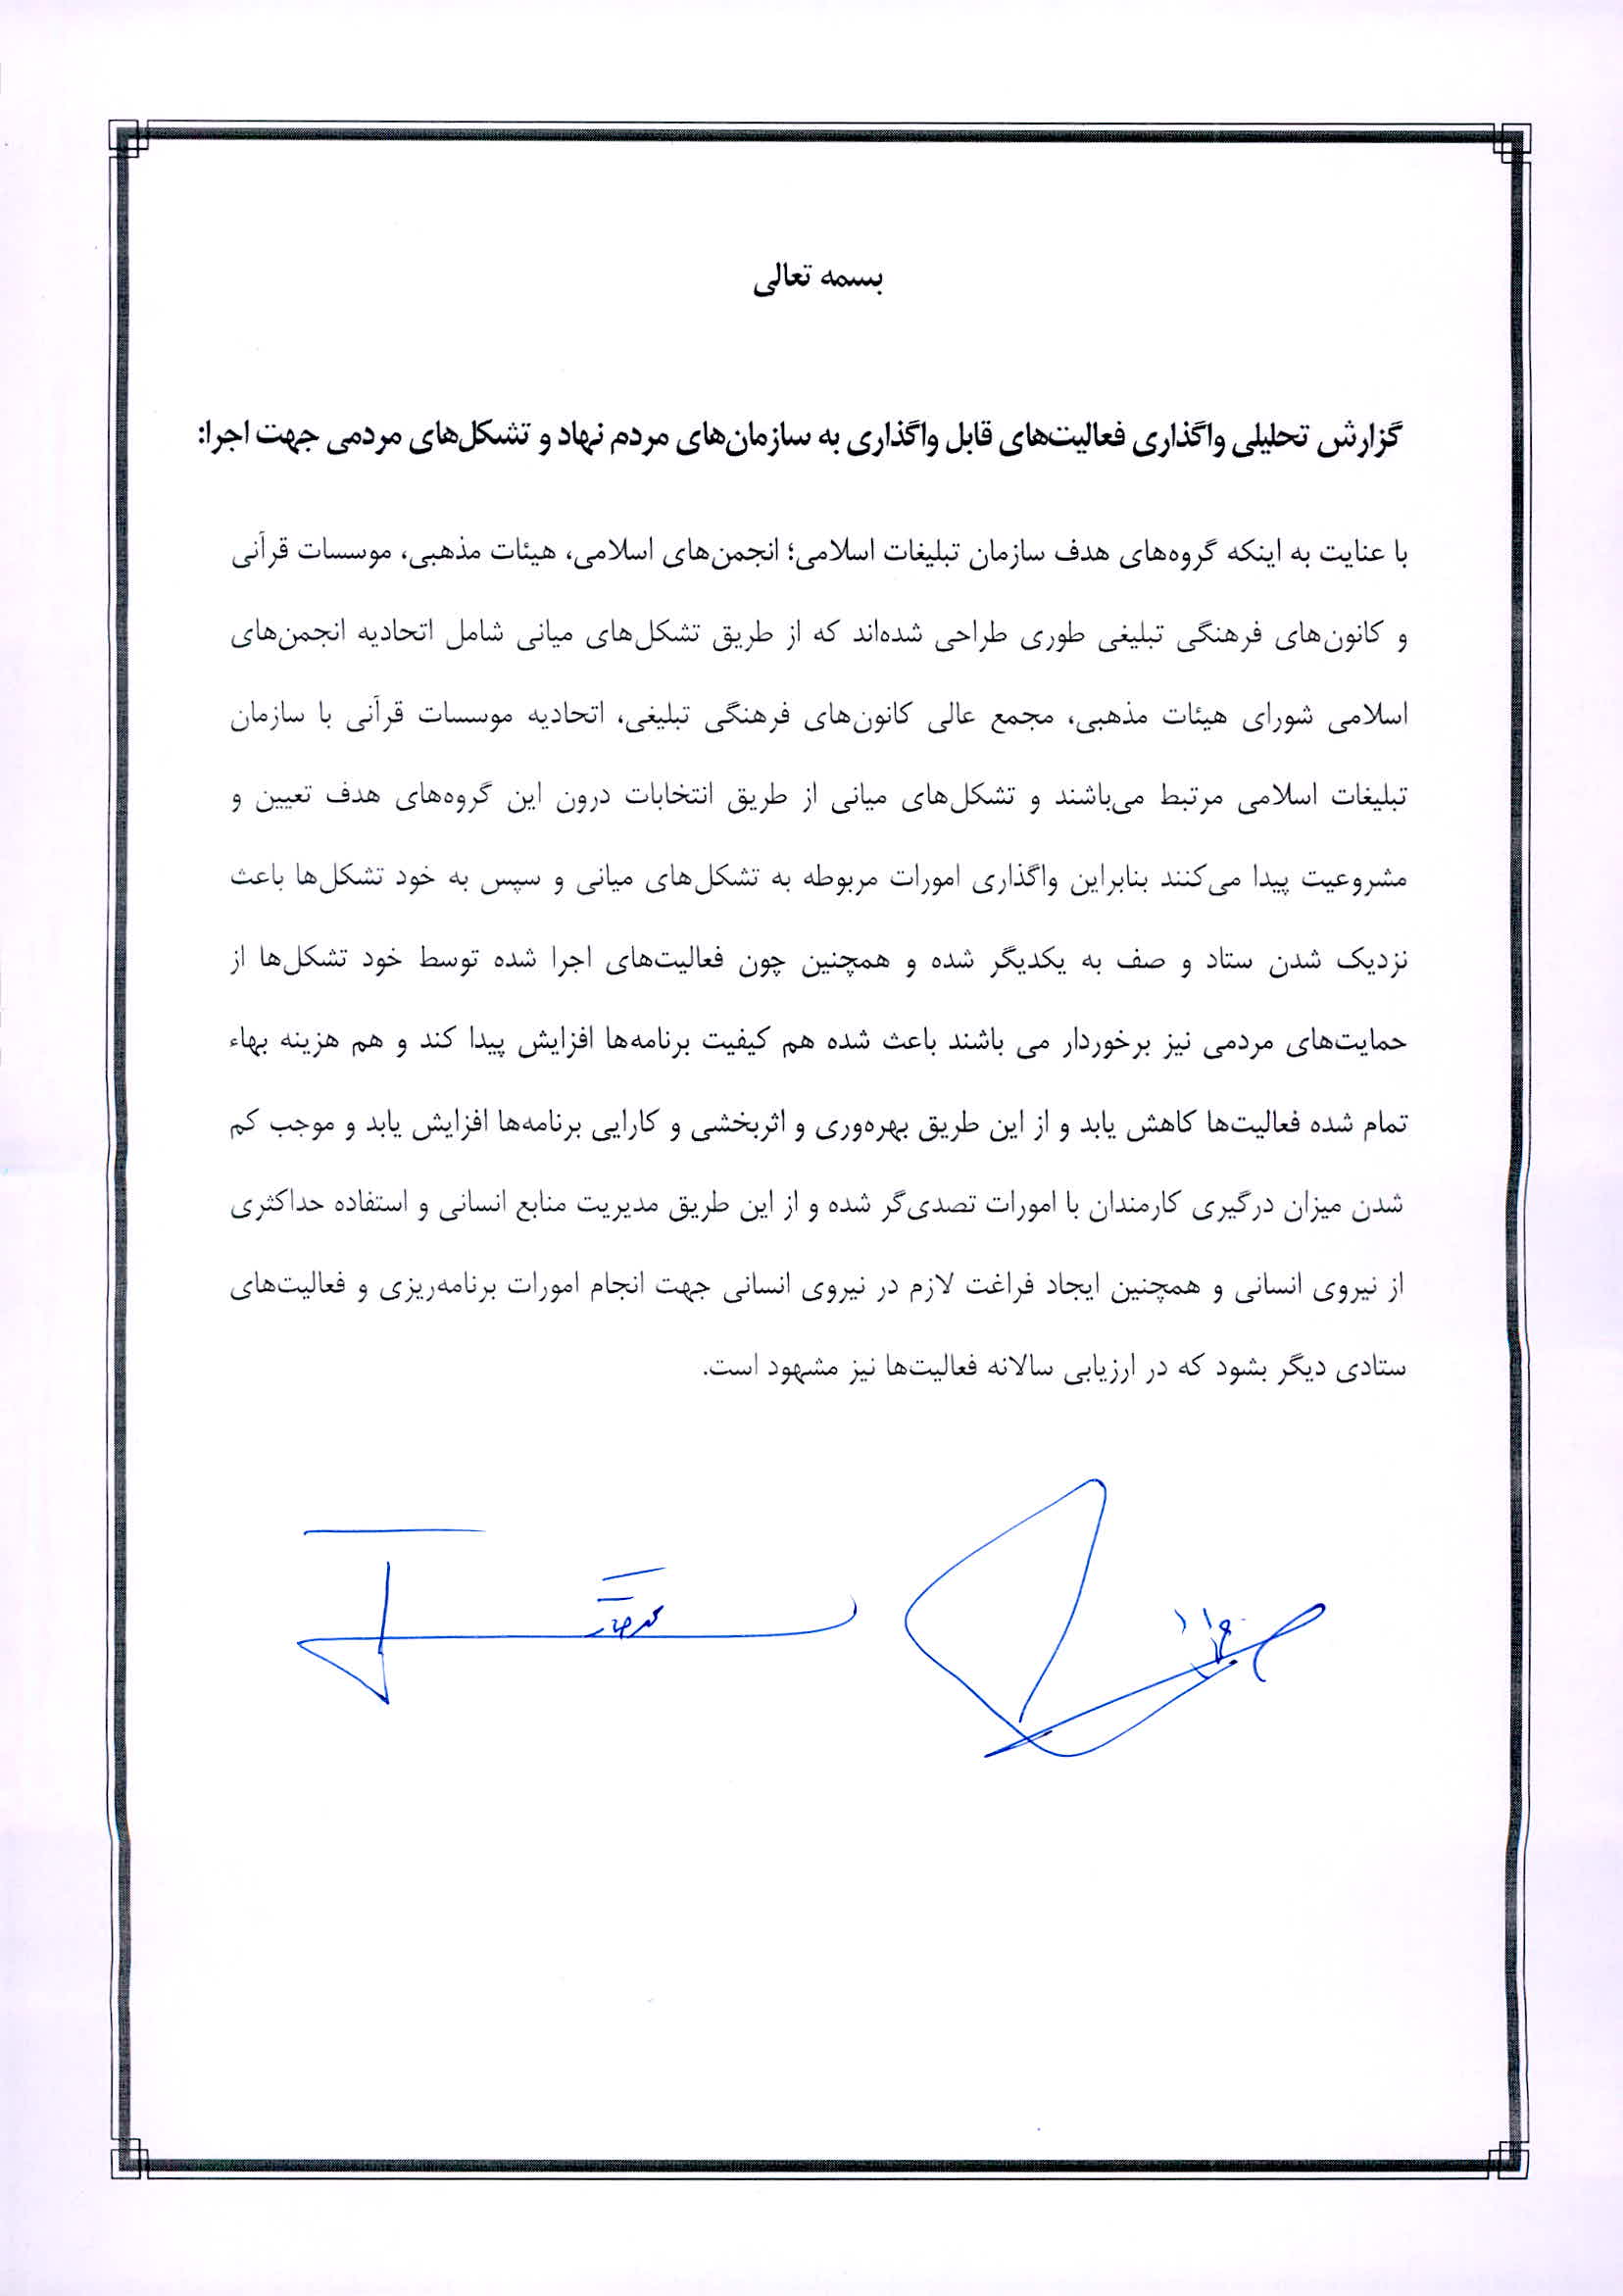 بسمه تعالی
گزارش تحلیلی واگذاری فعالیت‌های قابل واگذاری به سازمان‌های مردم نهاد و تشکل‌های مردمی جهت اجرا:
با عنایت به اینکه گروه‌های هدف سازمان تبلیغات اسلامی؛ انجمن‌های اسلامی، هیئات مذهبی، موسسات قرآنی
و کانون‌های فرهنگی تبلیغی طوری طراحی شده‌اند که از طریق تشکل‌های میانی شامل اتحادیه انجمن‌های
اسلامی شورای هیئات مذهبی، مجمع عالی کانون‌های فرهنگی تبلیغی، اتحادیه موسسات قرآنی با سازمان
تبلیغات اسلامی مرتبط می‌باشند و تشکل‌های میانی از طریق انتخابات درون این گروه‌های هدف تعیین و
مشروعیت پیدا می‌کنند بنابراین واگذاری امورات مربوطه به تشکل‌های میانی و سپس به خود تشکل‌ها باعث
نزدیک شدن ستاد و صف به یکدیگر شده و همچنین چون فعالیت‌های اجرا شده توسط خود تشکل‌ها از
حمایت‌های مردمی نیز برخوردار می باشند باعث شده هم کیفیت برنامه‌ها افزایش پیدا کند و هم هزینه بهاء
تمام شده فعالیت‌ها کاهش یابد و از این طریق بهره‌وری و اثربخشی و کارایی برنامه‌ها افزایش یابد و موجب کم
شدن میزان درگیری کارمندان با امورات تصدی‌گر شده و از این طریق مدیریت منابع انسانی و استفاده حداکثری
از نیروی انسانی و همچنین ایجاد فراغت لازم در نیروی انسانی جهت انجام امورات برنامه‌ریزی و فعالیت‌های
ستادی دیگر بشود که در ارزیابی سالانه فعالیت‌ها نیز مشهود است.